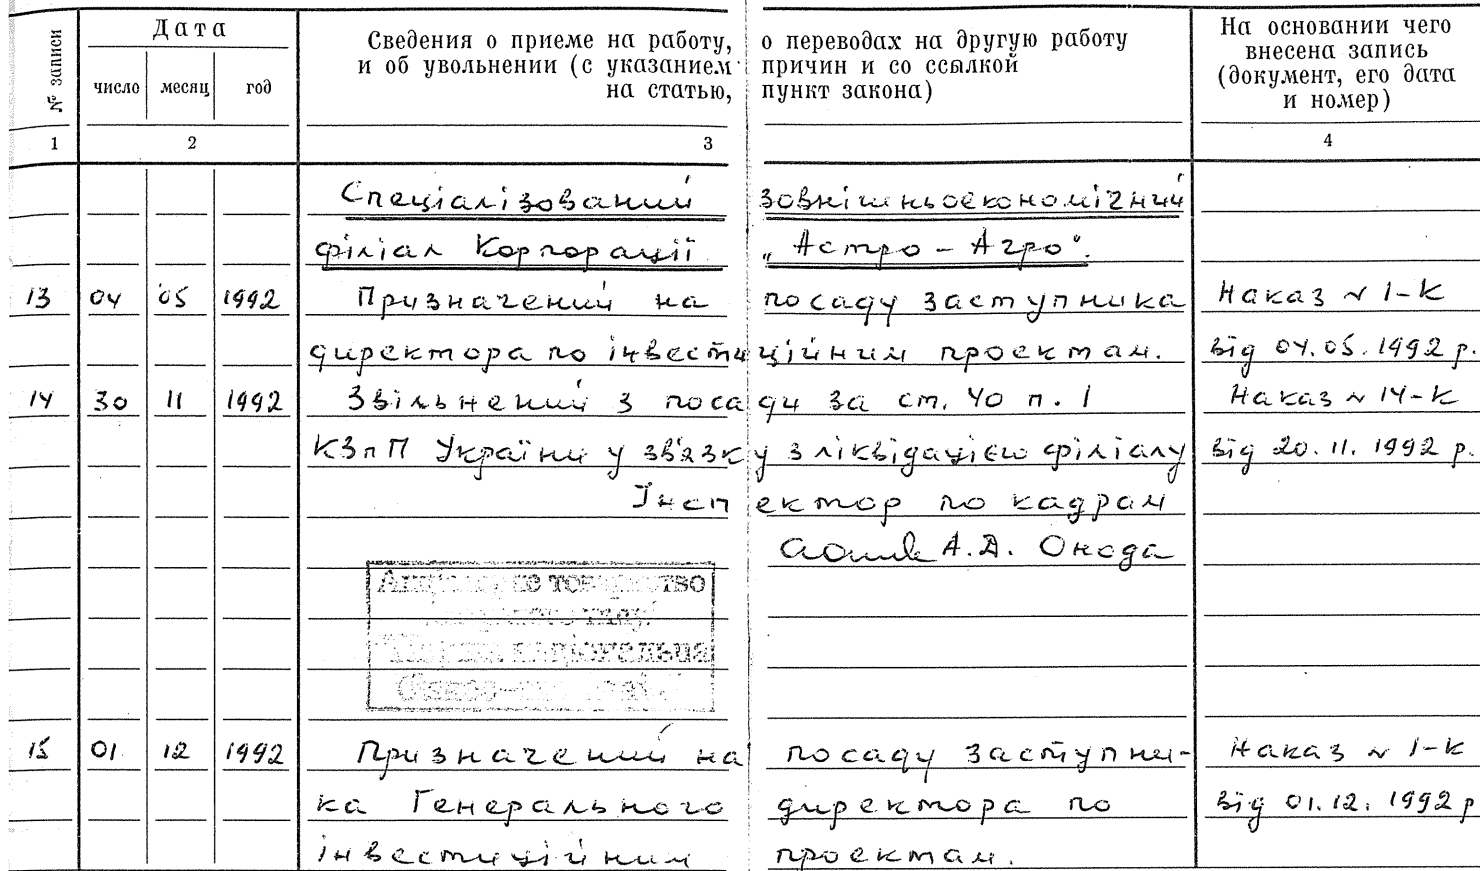 № записи
Дата
число месяц год
Сведения о приеме на работу, о переводах на другую работу
и об увольнении (с указанием причин и со ссылкой
на статью, пункт закона)
На основании чего
внесена запись
(документ, его дата
и номер)
1 2 3 4
Спеціалізований зовнішньоекономічний
філіал Корпорації „Астро-Агро".
13 04 05 1992 Призначений на посаду заступника Наказ № 1-К
директора по інвестиційним проектам. від 04.05.1992 р.
14 30 11 1992 Звільнений з посади за ст. 40 п. 1 Наказ № 14-К
КЗпП України у зв'язку з ліквідацією філіалу від 20.11.1992 р.
Інспектор по кадрам
А.Д. Онода
15 01 12 1992 Призначений на посаду заступни- Наказ № 1-К
ка Генерального директора по від 01.12.1992 р
інвестиційним проектам.